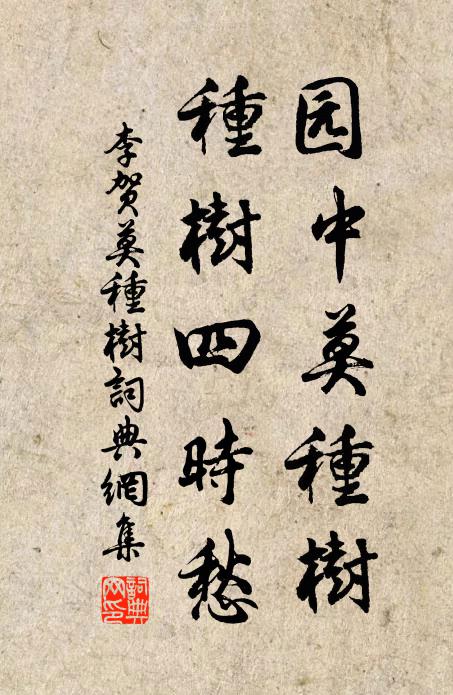 园中莫種樹
種樹四時愁
李贺莫種樹詞典網集
詞典
网印